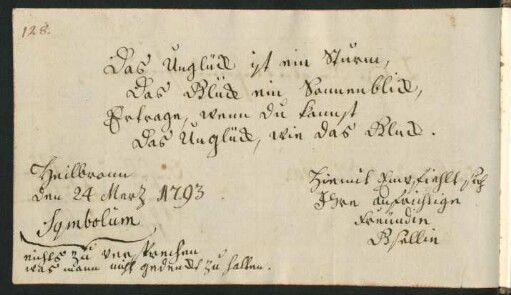 128.
Das Unglück ist ein Sturm,
Das Glück ein Sonnenblick,
Ertrage, wenn du kannst
Das Unglück, wie das Glück.
Heilbronn
den 24 Merz 1793
Symbolum
nichts zu versprechen
was mann nicht gedenckt zu halten.
Hiemit Empfiehlt sich
Ihre aufrichtige
Freundin